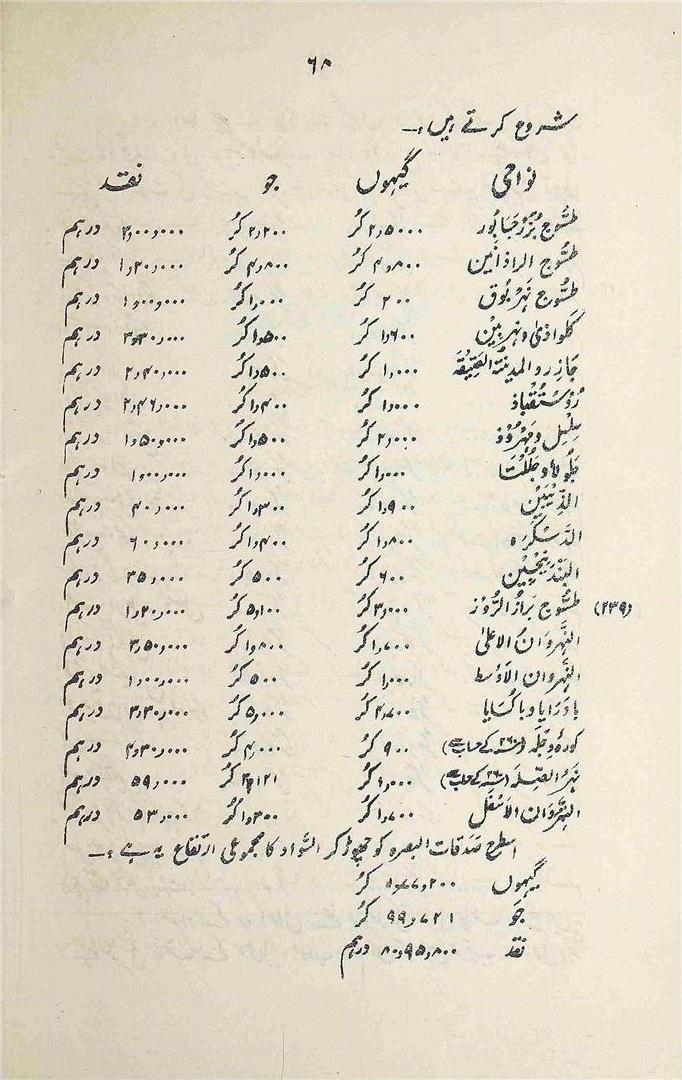 ۶۸
شروع کرتے ہیں:-
نواحی گیہوں جو نقد
طسُّوج بُزُرجسابور ۲٫۵۰۰ کُر ۲٫۲۰۰ کُر ۳٫۰۰٫۰۰۰ درہم
طسُّوج الراذانین ۴٫۸۰۰ کُر ۴٫۸۰۰ کُر ۱٫۲۰٫۰۰۰ درہم
طسُّوج نہر بُوق ۲۰۰ کُر ۱٫۰۰۰ کُر ۱٫۰۰٫۰۰۰ درہم
کلواذیٰ و نہر بین ۱٫۶۰۰ کُر ۱٫۵۰۰ کُر ۳٫۳۰٫۰۰۰ درہم
جازر و المدینۃ العتیقہ ۱٫۰۰۰ کُر ۱٫۵۰۰ کُر ۲٫۴۰٫۰۰۰ درہم
رُوستُقباذ ۱٫۰۰۰ کُر ۱٫۴۰۰ کُر ۲٫۴۶٫۰۰۰ درہم
سِلسِل و مہرُوذ ۲٫۰۰۰ کُر ۱٫۵۰۰ کُر ۱٫۵۰٫۰۰۰ درہم
جلُولا و جلُلتَا ۱٫۰۰۰ کُر ۱٫۰۰۰ کُر ۱٫۰۰٫۰۰۰ درہم
الذیبین ۱٫۹۰۰ کُر ۱٫۳۰۰ کُر ۴۰٫۰۰۰ درہم
الدَّسکَرہ ۱٫۸۰۰ کُر ۱٫۴۰۰ کُر ۶۰٫۰۰۰ درہم
البَندَنیجین ۶۰۰ کُر ۵۰۰ کُر ۳۵٫۰۰۰ درہم
(۲۳۹) طسُّوج برازُ الرُّوز ۳٫۰۰۰ کُر ۵٫۱۰۰ کُر ۱٫۲۰٫۰۰۰ درہم
النَّہروانُ الاعلیٰ ۱٫۷۰۰ کُر ۱٫۸۰۰ کُر ۳٫۵۰٫۰۰۰ درہم
النَّہروان الاَوسط ۱٫۰۰۰ کُر ۵۰۰ کُر ۱٫۰۰٫۰۰۰ درہم
بادَرایا و باکُسایا ۴٫۷۰۰ کُر ۵٫۰۰۰ کُر ۳٫۳۰٫۰۰۰ درہم
کورۂ دِجلہ (۲۶۰ کے حساب سے) ۹۰۰ کُر ۴٫۰۰۰ کُر ۴٫۳۰٫۰۰۰ درہم
نہرُ الصِّلہ (۲۶۰ کے حساب سے) ۱٫۰۰۰ کُر ۳٫۱۲۱ کُر ۵۹٫۰۰۰ درہم
النہروان الاَسفل ۱٫۷۰۰ کُر ۱٫۳۰۰ کُر ۵۳٫۰۰۰ درہم
اسطرح صَدقات البصرہ کو چھوڑ کر السَّواد کا مجموعی ارتفاع یہ ہے:-
گیہوں ۵٫۷۷٫۲۰۰ کُر
جَو ۹۹٫۷۲۱ کُر
نقد ۸۰٫۹۵٫۸۰۰ درہم